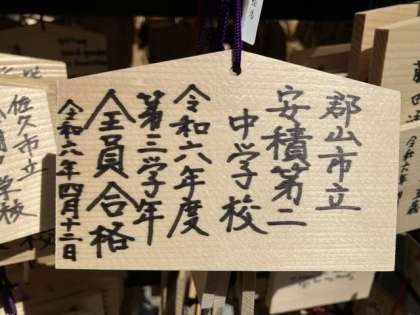 郡山市立
安積第二
中学校
令和六年度
第三学年
全員合格
令和六年四月十二日
佐久市立